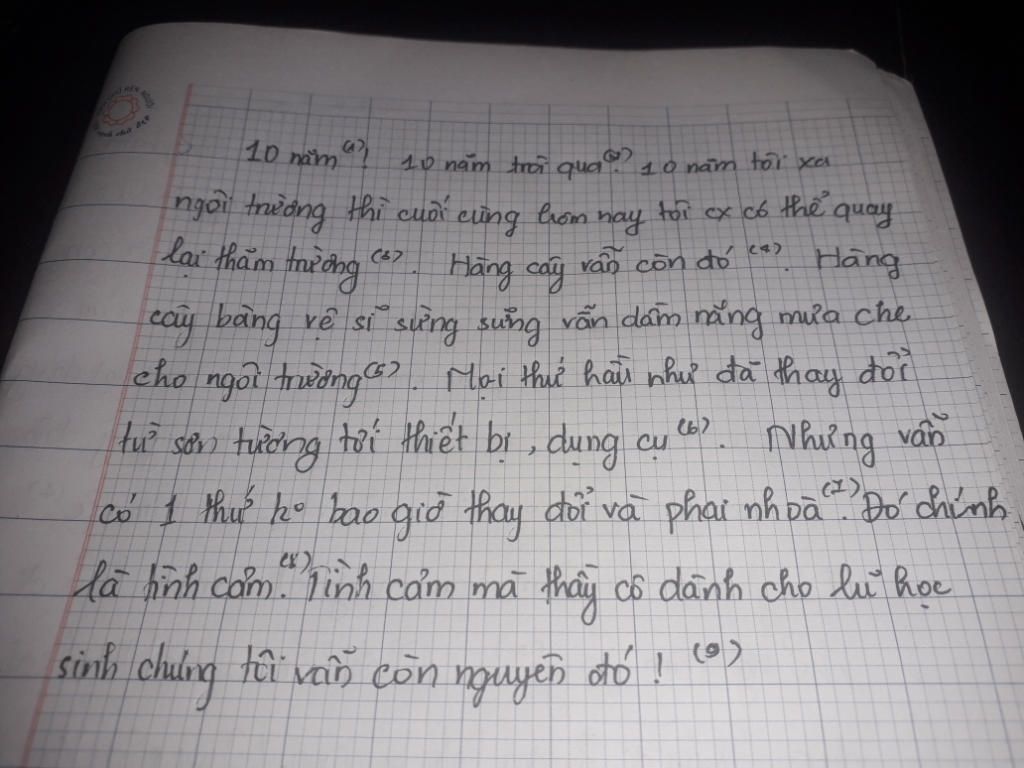 10 năm(1)! 10 năm trôi qua(2). 10 năm tôi xa
ngôi trường thì cuối cùng hôm nay tôi cx có thể quay
lại thăm trường (3). Hàng cây vẫn còn đó (4). Hàng
cây bàng vệ sĩ sừng sững vẫn dầm nắng mưa che
cho ngôi trường(5). Mọi thứ hầu như đã thay đổi
từ sơn tường tới thiết bị, dụng cụ (6). Nhưng vẫn
có 1 thứ ko bao giờ thay đổi và phai nhoà(7). Đó chính
là tình cảm.(8) Tình cảm mà thầy cô dành cho lũ học
sinh chúng tôi vẫn còn nguyên đó! (9)